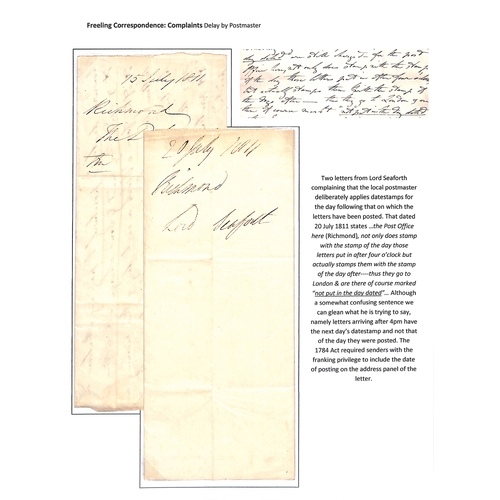 Freeling Correspondence: Complaints Delay by Postmaster
15 July 1811
Richmond
The
20 July 1811
Richmond
Lord Seaforth
for the post
only does stamp with the stamp
day those letters put in after four
but actually stamps them with the stamp of
the day after — thus they go to London &
of course mark'd "not put in the day dated"
Two letters from Lord Seaforth
complaining that the local postmaster
deliberately applies datestamps for
the day following that on which the
letters have been posted. That dated
20 July 1811 states …the Post Office
here (Richmond), not only does stamp
with the stamp of the day those
letters put in after four o'clock but
actually stamps them with the stamp
of the day after----thus they go to
London & are there of course marked
"not put in the day dated"… Although
a somewhat confusing sentence we
can glean what he is trying to say,
namely letters arriving after 4pm have
the next day's datestamp and not that
of the day they were posted. The
1784 Act required senders with the
franking privilege to include the date
of posting on the address panel of the
letter.